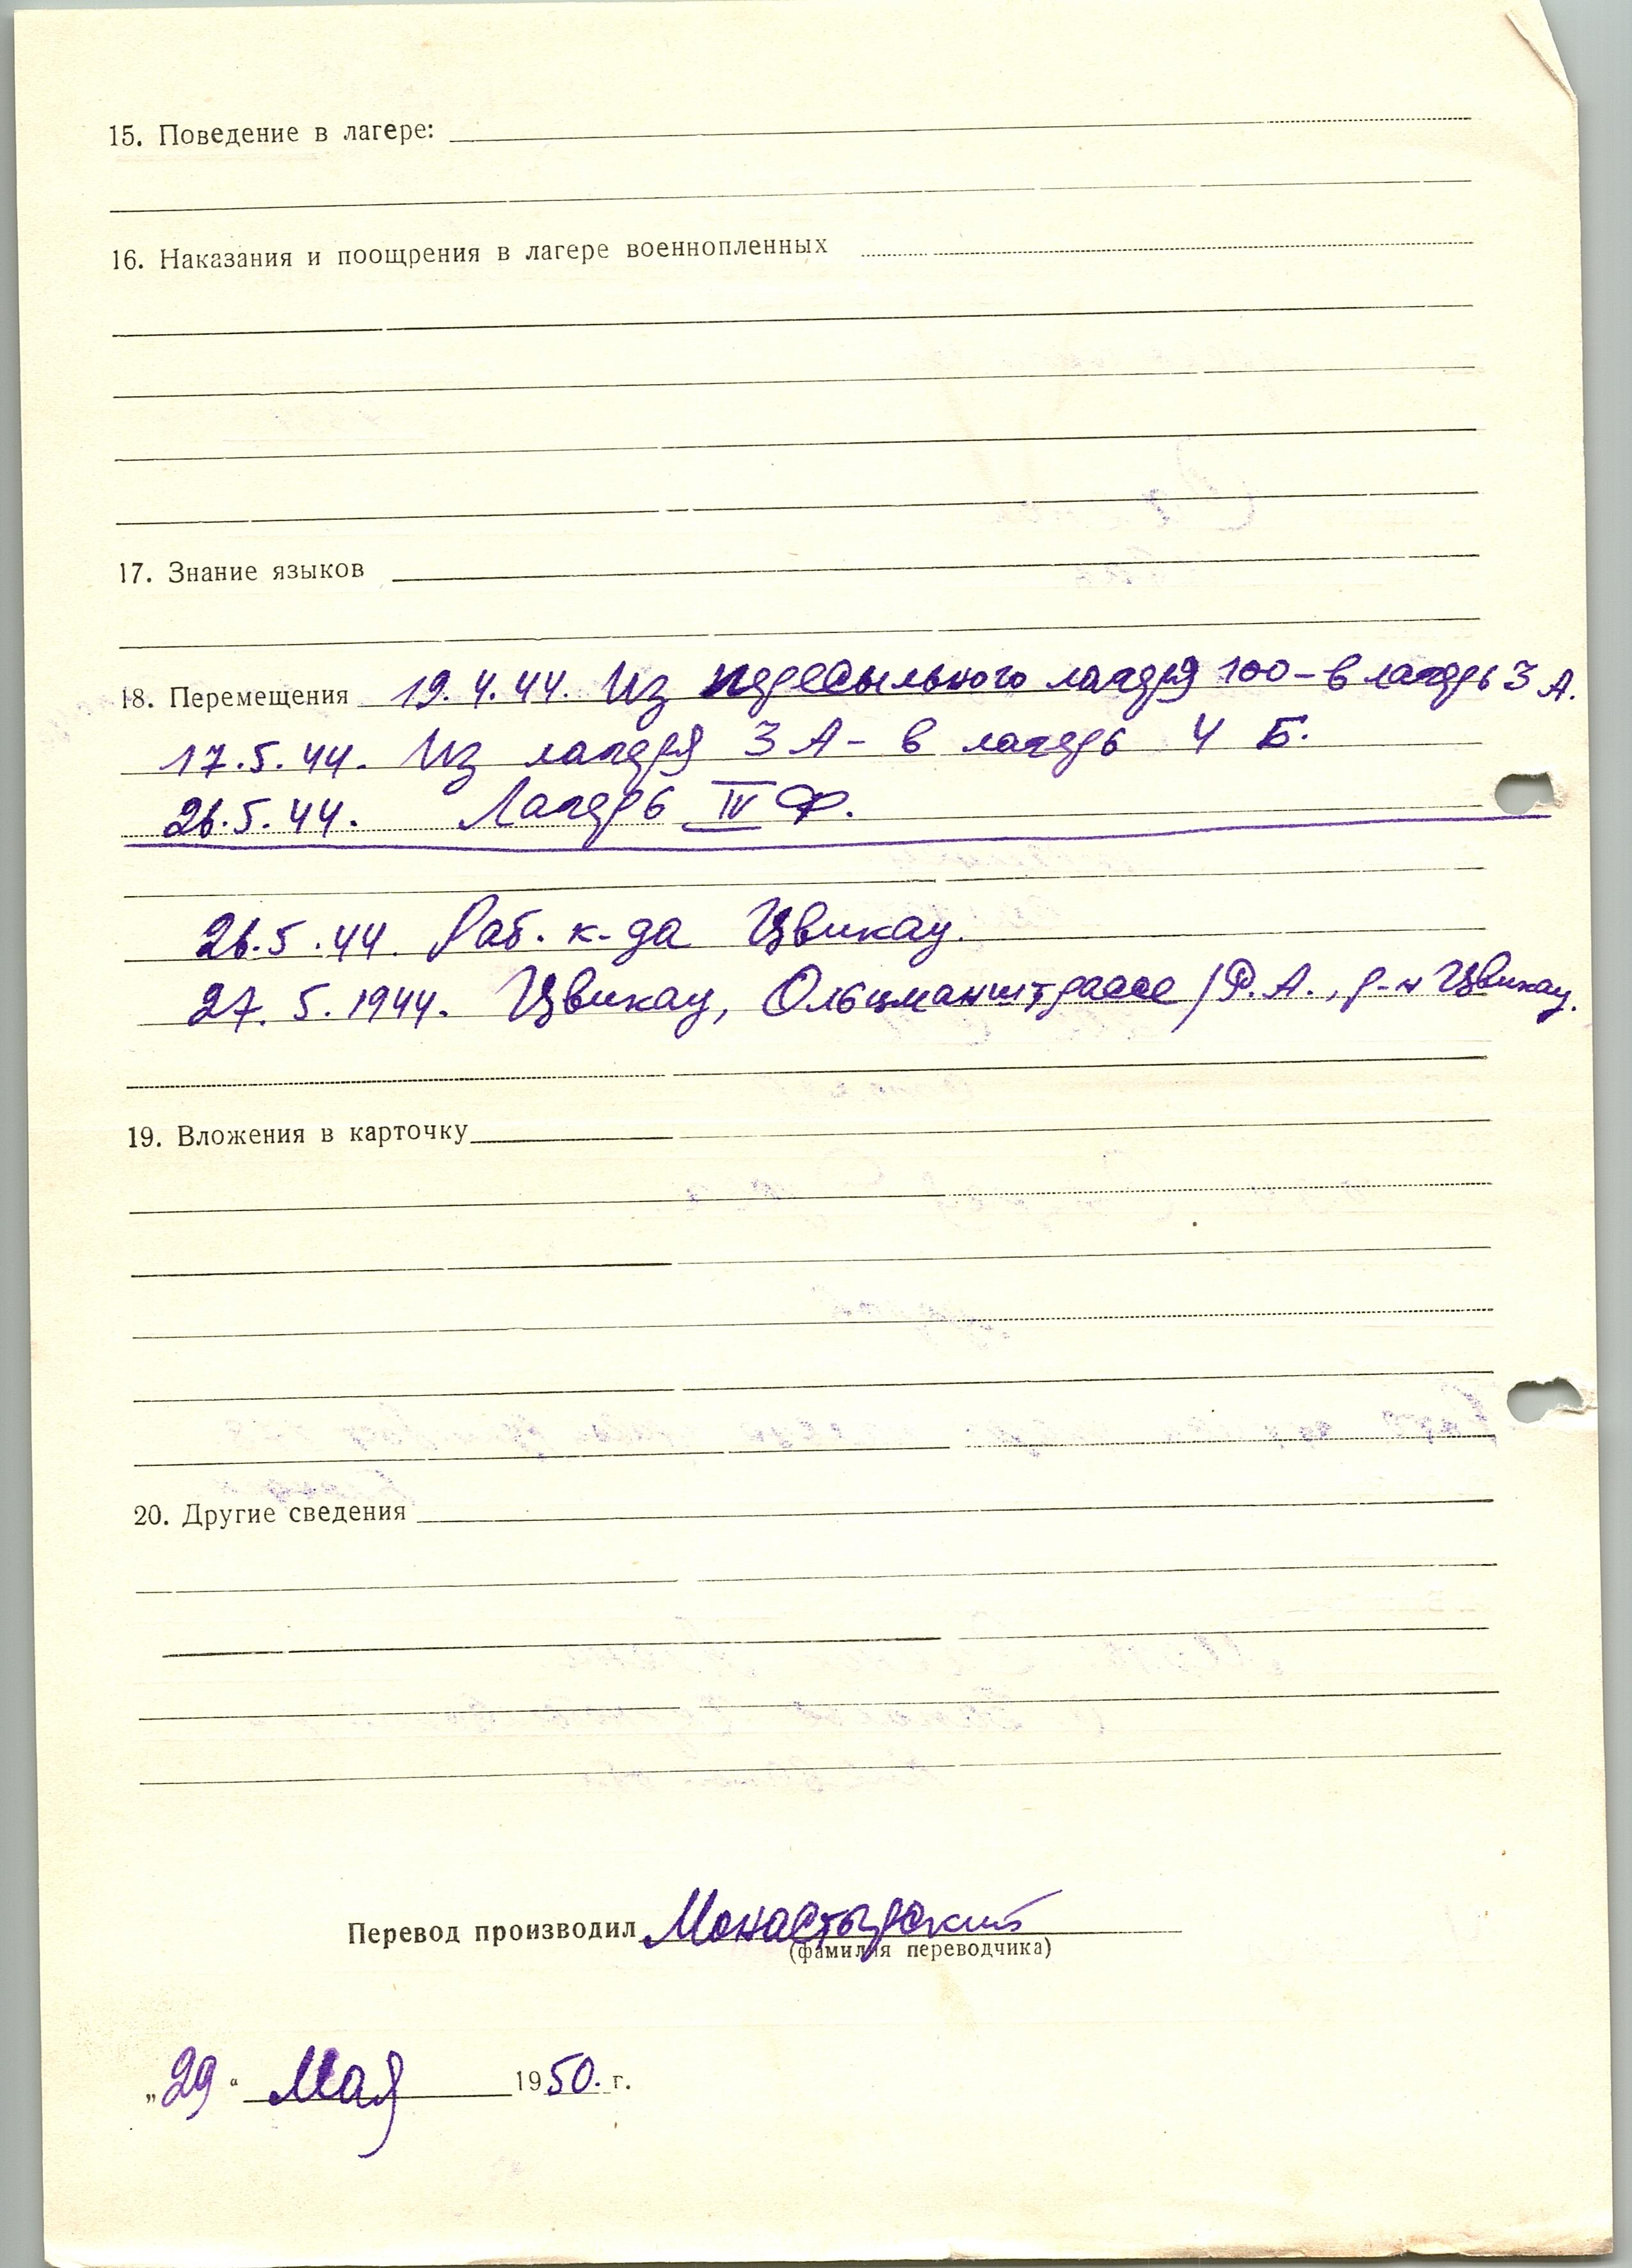 15. Поведение в лагере:
16. Наказания и поощрения в лагере военнопленных
17. Знание языков
18. Перемещения 19.4.44. Из пересыльного лагеря 100 - в лагерь 3 А.
17.5.44. Из лагеря 3 А - в лагерь 4 Б.
26.5.44. Лагерь IV Ф.
26.5.44. Раб. к-да Цвикау.
27.5.1944. Цвикау, Ольцманштрассе /Р.А., р-н Цвикау.
19. Вложения в карточку
20. Другие сведения
Перевод производил Монастырский
(фамилия переводчика)
„29“ Мая 1950. г.